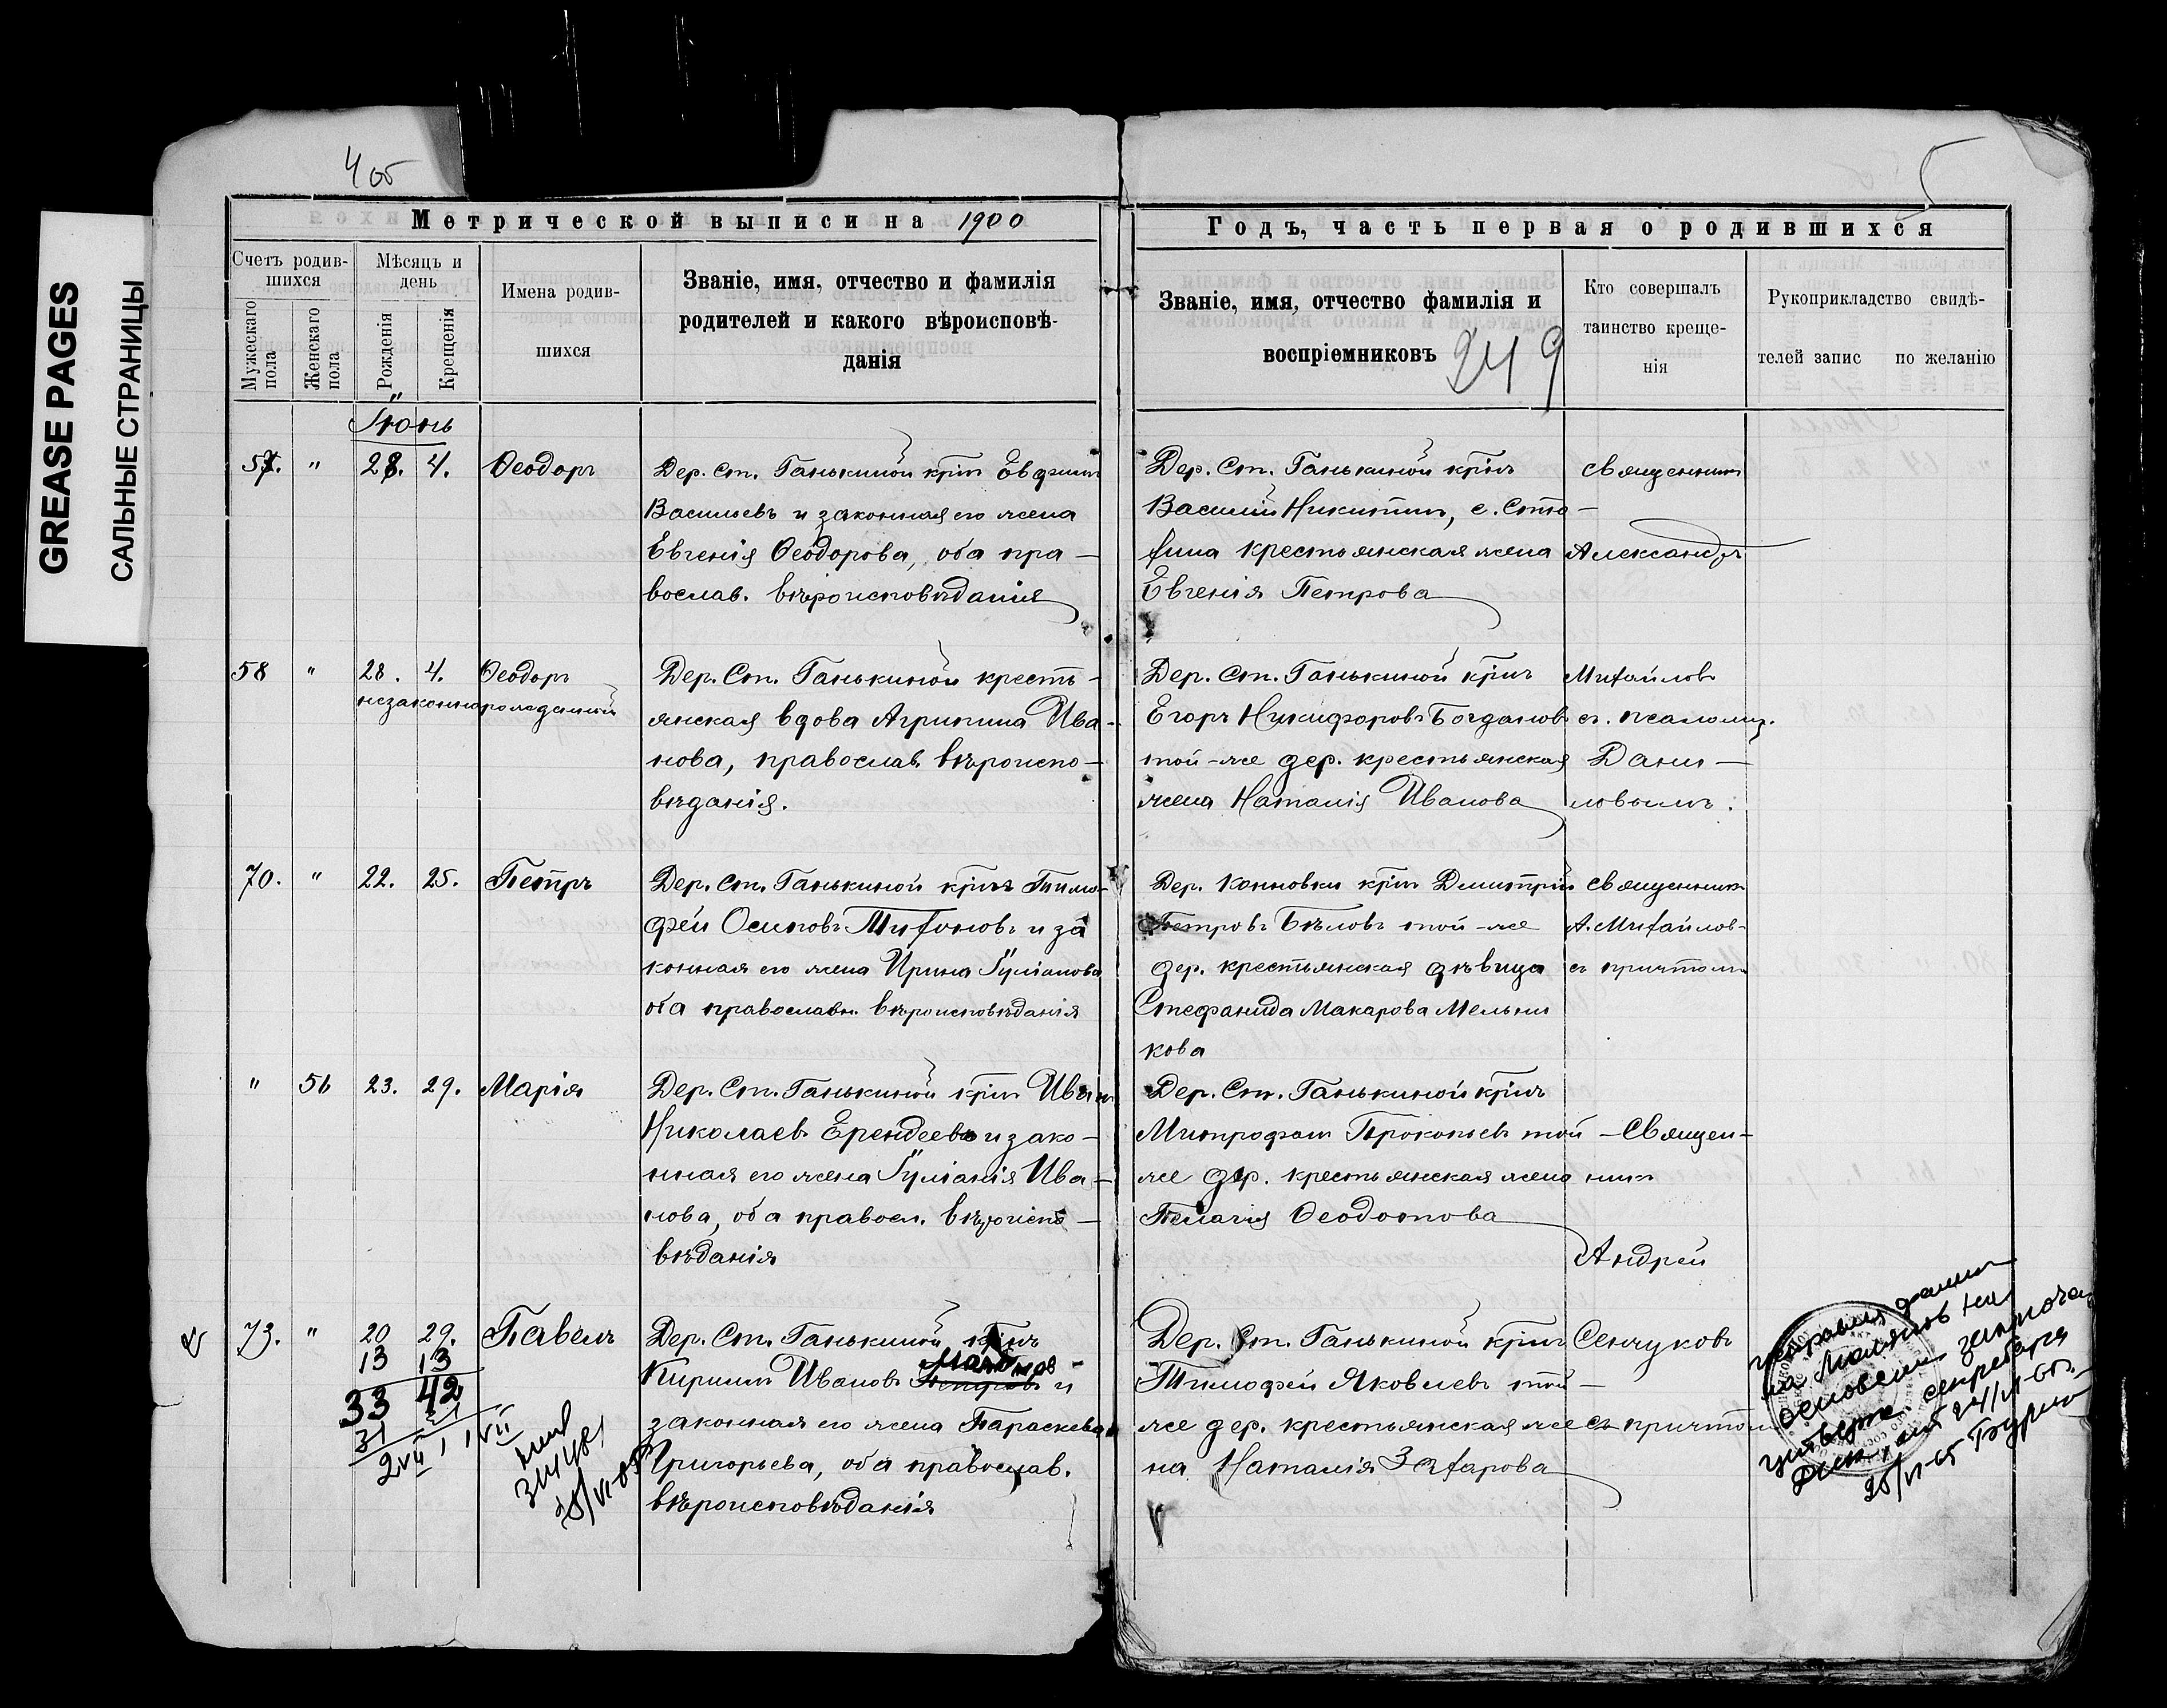 GREASE PAGES
САЛЬНЫЕ СТРАНИЦЫ
4 об
5
Метрической выписи на 1900
Годъ, часть первая о родившихся
Счетъ родив-
шихся
Мужескаго
пола
Женскаго
пола
Мѣсяцъ и
день
Рожденія
Крещенія
Имена родив-
шихся
Званіе, имя, отчество и фамилія
родителей и какого вѣроисповѣ-
данія
Званіе, имя, отчество фамилія и
воспріемниковъ
249
Кто совершалъ
таинство креще-
нія
Рукоприкладство свидѣ-
телей запис по желанію
Іюнь
57. " 28. 4. Ѳеодоръ
Дер. Ст. Ганькиной крін Евфимъ
Васильевъ и законная его жена
Евгенія Ѳеодорова, оба пра-
вослав. вѣроисповѣданія
Дер. Ст. Ганькиной крінъ
Василій Никитинъ, с.
крестьянская жена
Евгенія Петрова
Священникъ
Александръ
58 " 28. 4. Ѳеодоръ
незаконнорожденный
Дер. Ст. Ганькиной кресть-
янская вдова Агрипина Ива-
нова, православ. вѣроиспо-
вѣданія.
Дер. Ст. Ганькиной крінъ
Егоръ Никифоровъ Богдановъ
той-же дер. крестьянская
жена Наталія Иванова
Михайловъ
съ псаломщ.
Дани-
ловымъ.
70. " 22. 25. Петръ
Дер. Ст. Ганькиной крінъ Тимо-
фей Осиповъ Тихоновъ и за
конная его жена Ирина Іуліанова
оба православн. вѣроисповѣданія
Дер. Конновки крін Димитрій
Петровъ Бѣловъ той-же
дер. крестьянская дѣвица
Стефанида Макарова Мельни
кова
Священникъ
А. Михайлов-
съ причтомъ
" 56 23. 29. Марія
Дер. Ст. Ганькиной крін Иванъ
Николаевъ Ерендеевъ и зако-
нная его жена Іуліанія Ива-
нова, оба правосл. вѣроиспо-
вѣданія
Дер. Ст. Ганькиной крінъ
Митрофанъ Прокопьевъ той-
же дер. крестьянская жена
Пелагія Ѳеодотова
Священ-
никъ
Андрей
73. " 20 29. Павелъ
13 13
33 42
31 31
2 VII 1 VII
Дер. Ст. Ганькиной крінъ
Кириллъ Ивановъ Петровъ и
законная его жена Параскева
Григорьева, оба православ.
вѣроисповѣданія
Дер. Ст. Ганькиной крінъ
Тимофей Яковлевъ той-
же дер. крестьянская же
на Наталія Захарова
Сенчуковъ
съ причтом